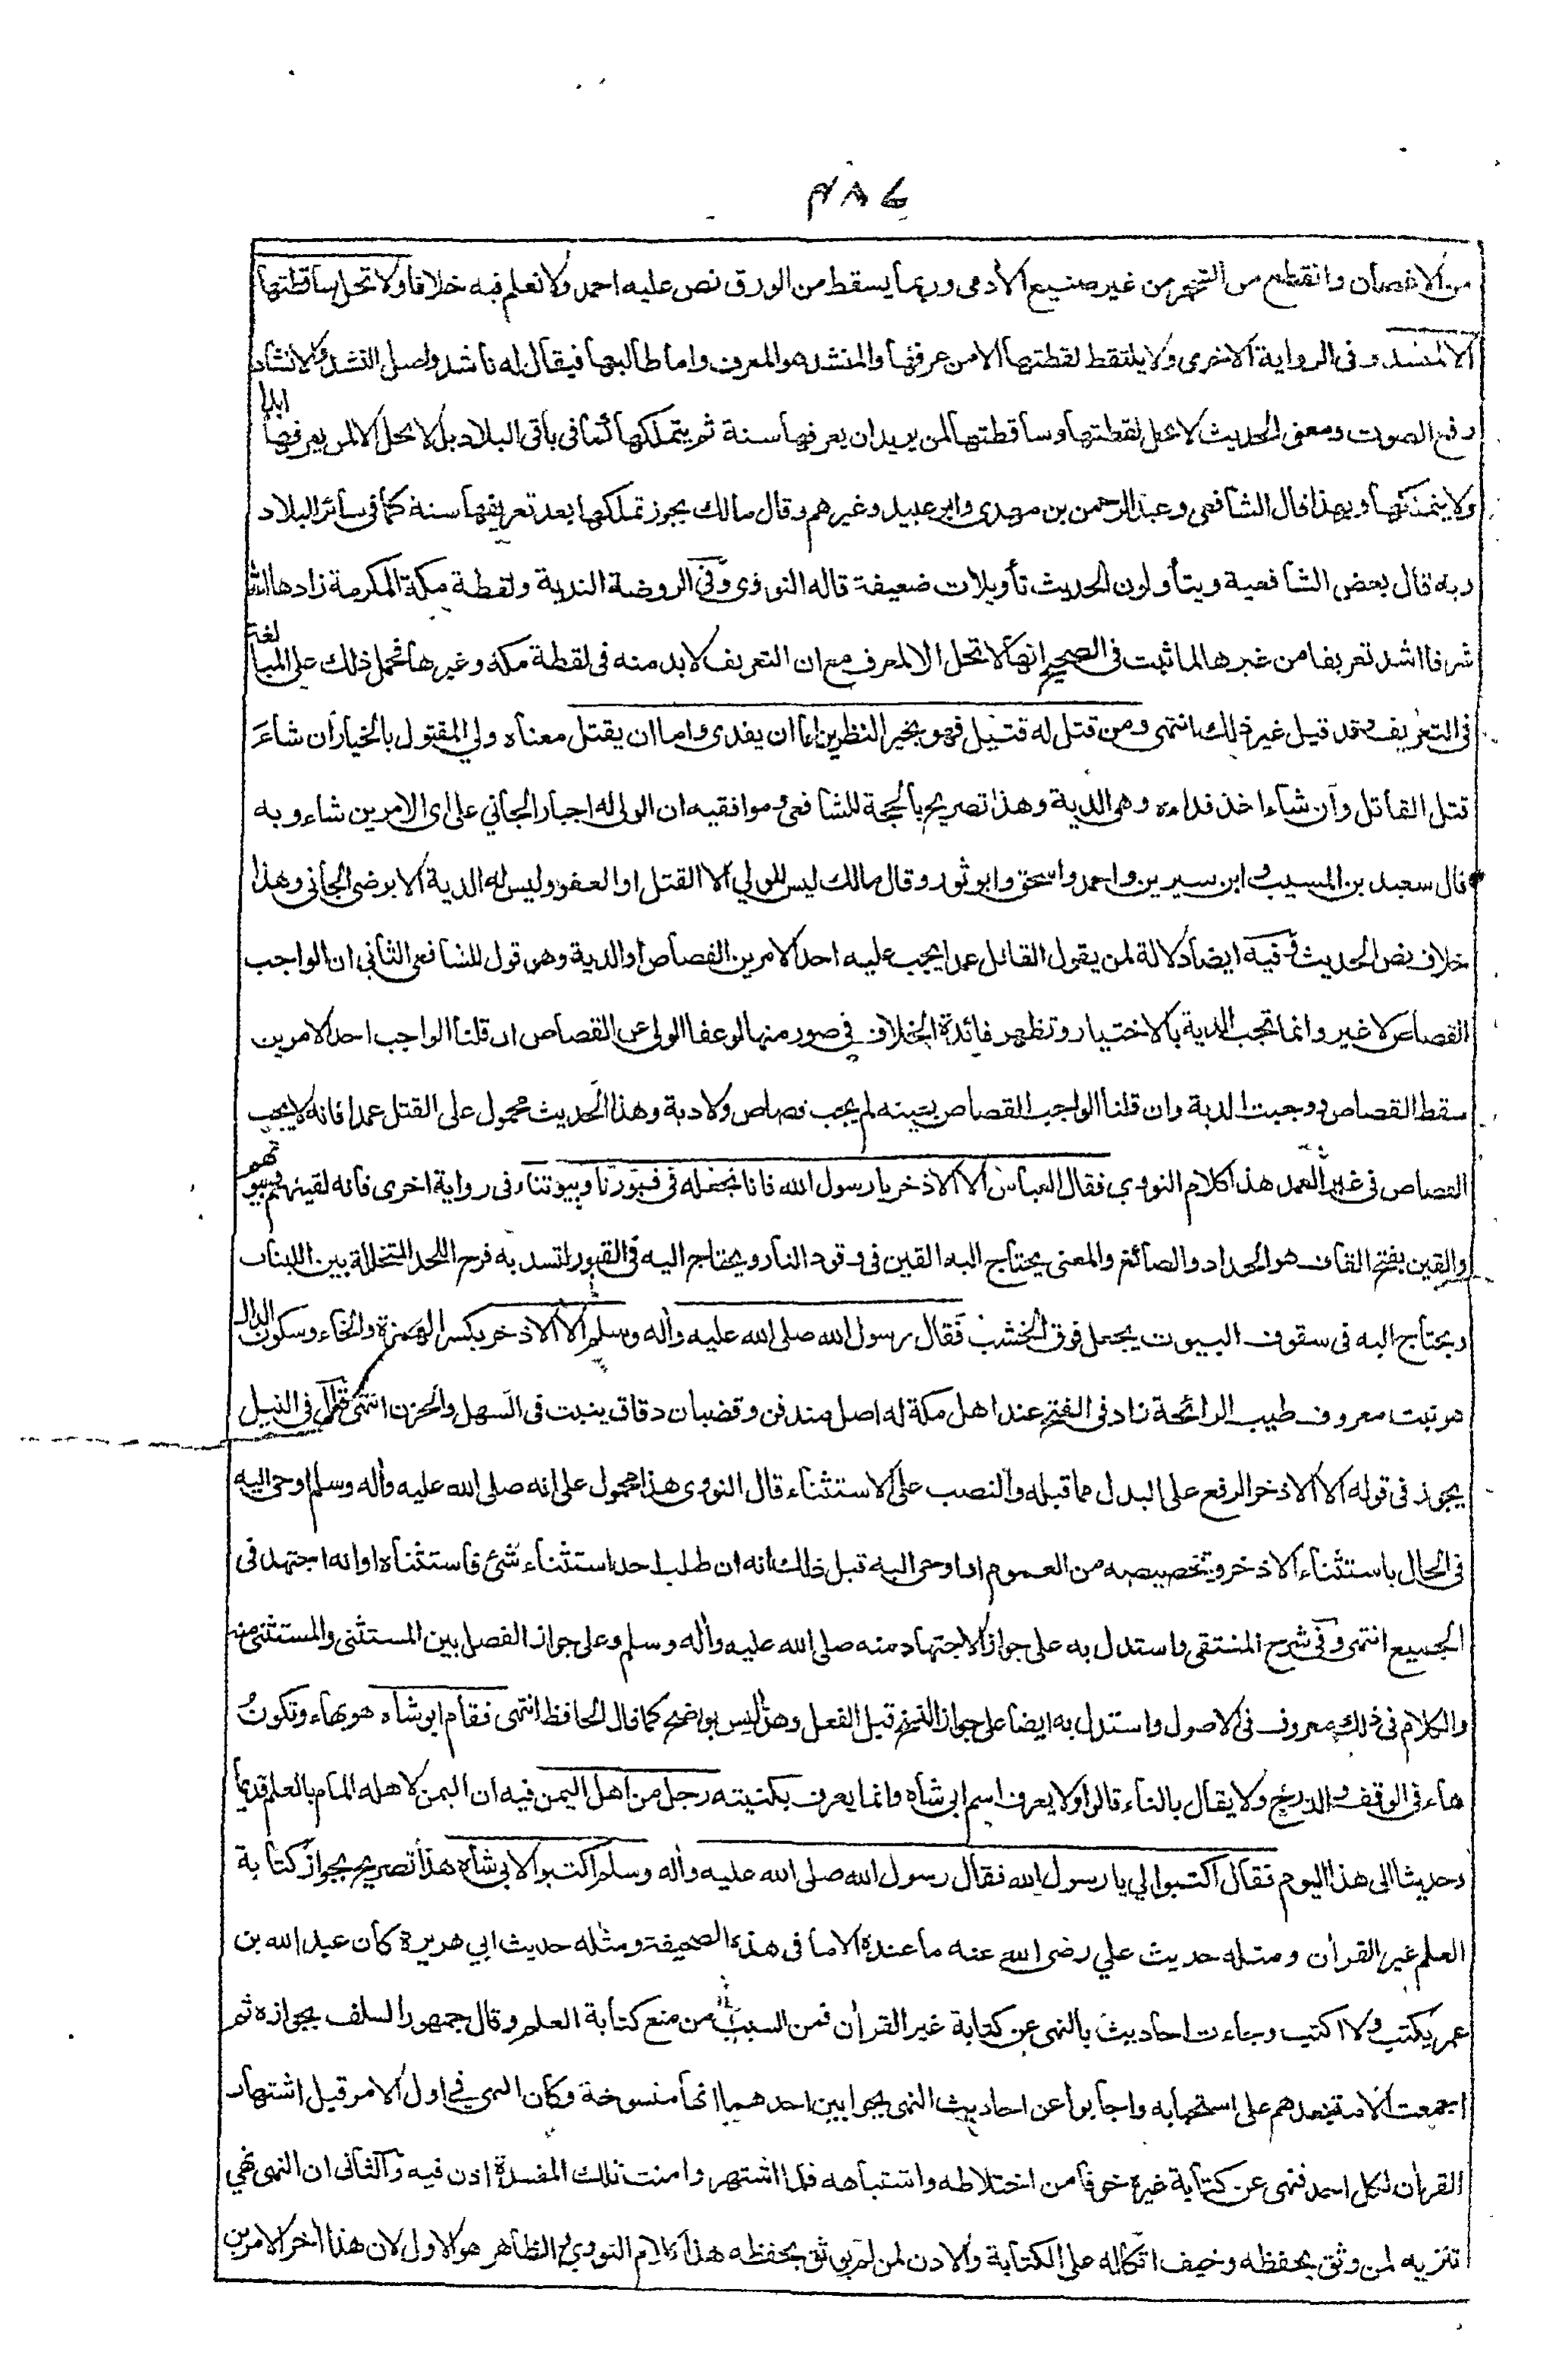 من الاغصان وانقطع من الشجر من غير صنيع الأدمى وربما يسقط من الورق نص عليه احمد ولا نعلم فيه خلافا ولا تحل ساقطتها
الا لمنشد وفى الرواية الاخرى ولا يلتقط لقطتها الا من عرفها والمنشد هو المعرف واما طالبها فيقال له ناشد واصل النشد والانشاد
رفع الصوت ومعنى الحديث لا تحل لقطتها وساقطتها لمن يريد ان يعرفها سنة ثم يتملكها كما فى باقى البلاد بل لا تحل الا لمن يعرفها ابدا
ولا يتملكها وبهذا قال الشافعى وعبد الرحمن بن مهدى وابو عبيد وغيرهم وقال مالك يجوز تملكها بعد تعريفها سنة كما فى سائر البلاد
وبه قال بعض الشافعية ويتأولون الحديث تأويلات ضعيفة قاله النووى وفى الروضة الندية ولقطة مكة المكرمة زادها الله
شرفا اشد تعريفا من غيرها لما ثبت فى الصحيح انها لا تحل الا لمعرف مع ان التعريف لا بد منه فى لقطة مكة وغيرها فحمل ذلك على المبالغة
فى التعريف وقد قيل غير ذلك انتهى ومن قتل له قتيل فهو بخير النظرين اما ان يفدى واما ان يقتل معناه ولي المقتول بالخيار ان شاء
قتل القاتل وان شاء اخذ فداءه وهى الدية وهذا تصريح بالحجة للشافعى وموافقيه ان الولى له اجبار الجاني على اى الامرين شاء وبه
قال سعيد بن المسيب وابن سيرين واحمد واسحق وابو ثور وقال مالك ليس للولي الا القتل او العفو وليس له الدية الا برضى الجانى وهذا
خلاف نص الحديث وفيه ايضا دلالة لمن يقول القاتل عمدا يجب عليه احد الامرين القصاص او الدية وهو قول للشافعى الثانى ان الواجب
القصاص لا غير وانما تجب الدية بالاختيار وتظهر فائدة الخلاف فى صور منها لو عفا الولى عن القصاص ان قلنا الواجب احد الامرين
سقط القصاص ووجبت الدية وان قلنا الواجب القصاص بعينه لم يجب قصاص ولا دية وهذا الحديث محمول على القتل عمدا فانه لا يجب
القصاص فى غير العمد هذا كلام النووي فقال العباس الا الاذخر يا رسول الله فانا نجعله فى قبورنا وبيوتنا وفى رواية اخرى فانه لقينهم وبيوتهم
والقين بفتح القاف هو الحداد والصائغ والمعنى يحتاج اليه القين فى وقود النار ويحتاج اليه فى القبور لتسد به فرج اللحد المتخللة بين اللبنات
ويحتاج اليه فى سقوف البيوت يجعل فوق الخشب فقال رسول الله صلى الله عليه واله وسلم الا الاذخر بكسر الهمزة والخاء وسكون الذال
هو نبت معروف طيب الرائحة زاد فى الفتح عند اهل مكة له اصل مندفن وقضبان دقاق ينبت فى السهل والحزن انتهى قال فى النيل
يجوز فى قوله الا الاذخر الرفع على البدل مما قبله والنصب على الاستثناء قال النووى هذا محمول على انه صلى الله عليه واله وسلم اوحى اليه
فى الحال باستثناء الاذخر وتخصيصه من العموم او اوحى اليه قبل ذلك انه ان طلب احد استثناء شئ فاستثناه او انه اجتهد فى
الجميع انتهى وفى شرح المنتقى واستدل به على جواز الاجتهاد منه صلى الله عليه واله وسلم وعلى جواز الفصل بين المستثنى والمستثنى منه
والكلام فى ذلك معروف فى الاصول واستدل به ايضا على جواز النسخ قبل الفعل وهذا ليس بواضح كما قال الحافظ انتهى فقام ابو شاه هو بهاء وتكون
هاء فى الوقف والدرج ولا يقال بالتاء قالوا ولا يعرف اسم ابى شاه وانما يعرف بكنيته رجل من اهل اليمن فيه ان اليمن لاهله المام بالعلم قديما
وحديثا الى هذا اليوم فقال اكتبوا لي يا رسول الله فقال رسول الله صلى الله عليه واله وسلم اكتبوا لابى شاه هذا تصريح بجواز كتابة
العلم غير القرأن ومثله حديث علي رضى الله عنه ما عنده الا ما فى هذه الصحيفة ومثله حديث ابي هريرة كان عبد الله بن
عمر يكتب ولا اكتب وجاءت احاديث بالنهى عن كتابة غير القرأن فمن السبب من منع كتابة العلم وقال جمهور السلف بجوازه ثم
اجمعت الامة بعدهم على استحبابه واجابوا عن احاديث النهى بجوابين احدهما انها منسوخة وكان النهى في اول الامر قبل اشتهار
القرأن لكل احد فنهى عن كتابة غيره خوفا من اختلاطه واشتباهه فلما اشتهر وامنت تلك المفسدة اذن فيه والثانى ان النهى نهي
تنزيه لمن وثق بحفظه وخيف اتكاله على الكتابة والاذن لمن لم يوثق بحفظه هذا كلام النووي والظاهر هو الاول لان هذا أخر الامرين